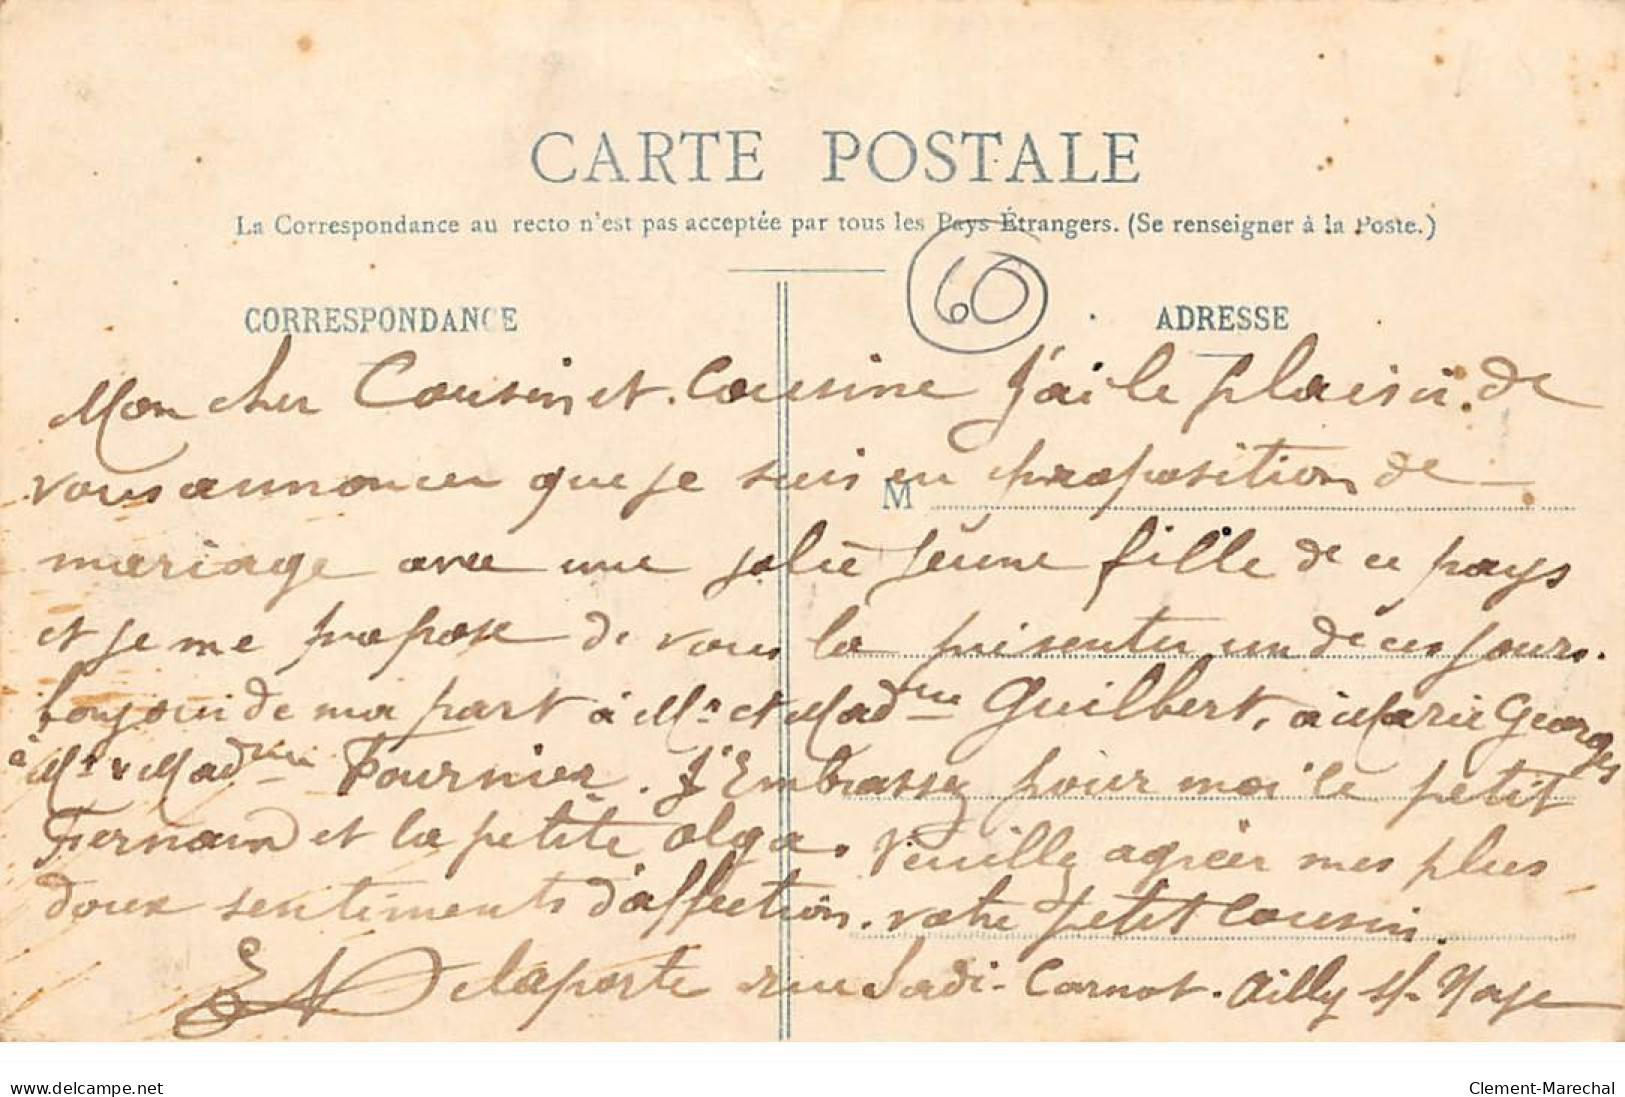 CARTE POSTALE
La Correspondance au recto n'est pas acceptée par tous les Pays Étrangers. (Se renseigner à la Poste.)
60
CORRESPONDANCE
ADRESSE
Mon cher Cousin et Cousine J'ai le plaisir de
vous annoncer que je suis en proposition de
M
mariage avec une jolie jeune fille de ce pays
et je me propose de vous la présenter un de ces jours.
bonjour de ma part à Mr et Madme Guilbert, à Marie Georges
à Mr & Madme Fournier. J'Embrassez pour moi le petit
Fernand et la petite Olga. Veuillez agréer mes plus
doux sentiments d'affection. votre petit Cousin.
Delaporte rue Sadi-Carnot. Ailly s/- Noye
www.delcampe.net
Clement-Marechal